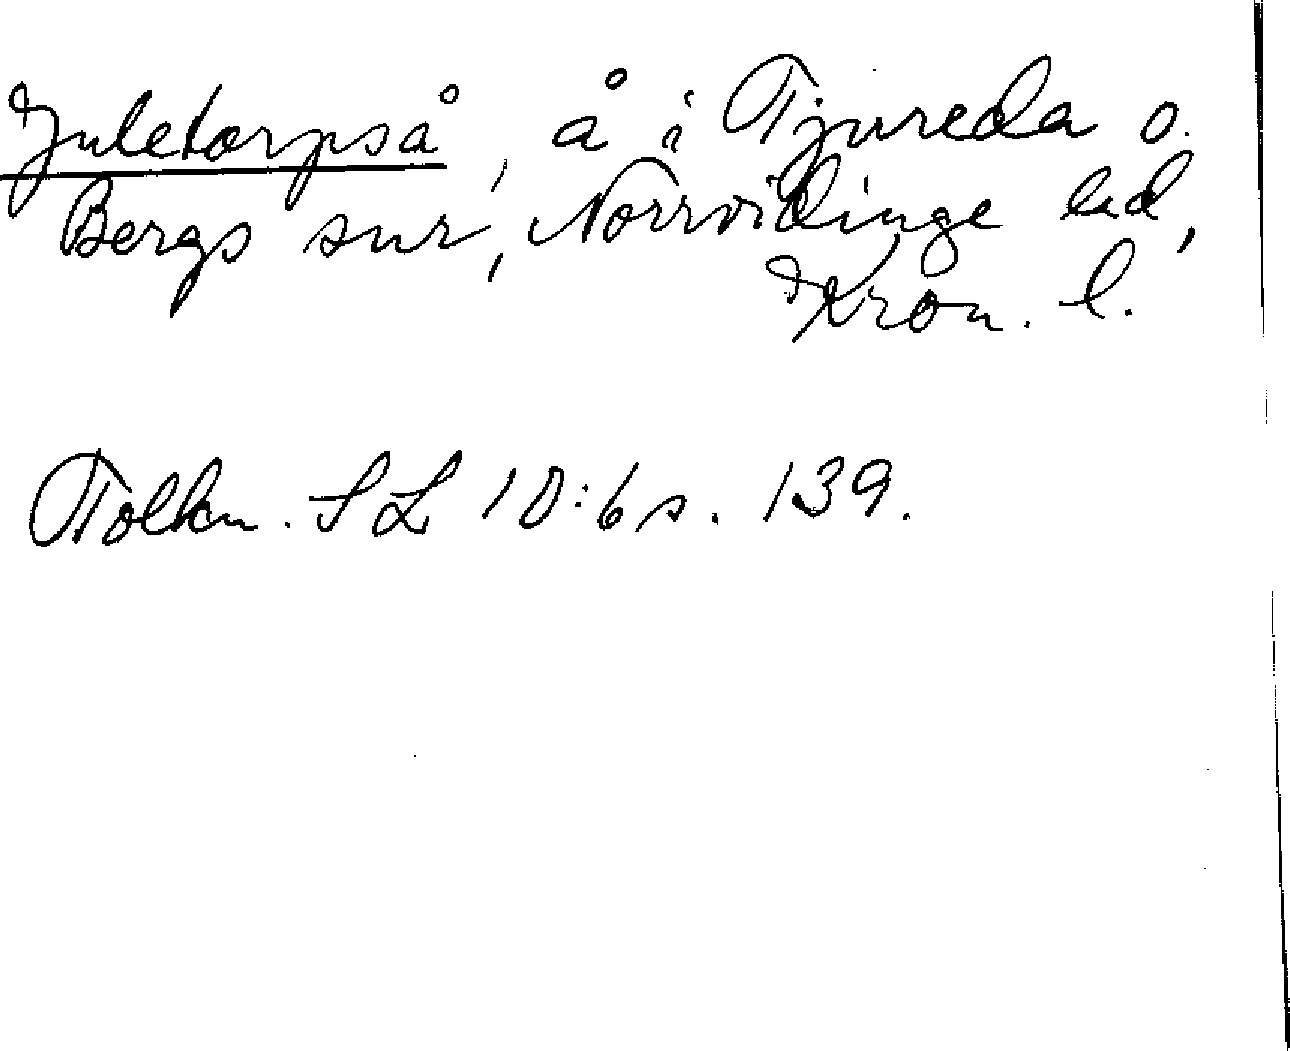 Juletorpså, å i Tjureda o.
Bergs snr, Norrvidinge hd,
Kron. l.
Tolkn. SL 10:6 s. 139.